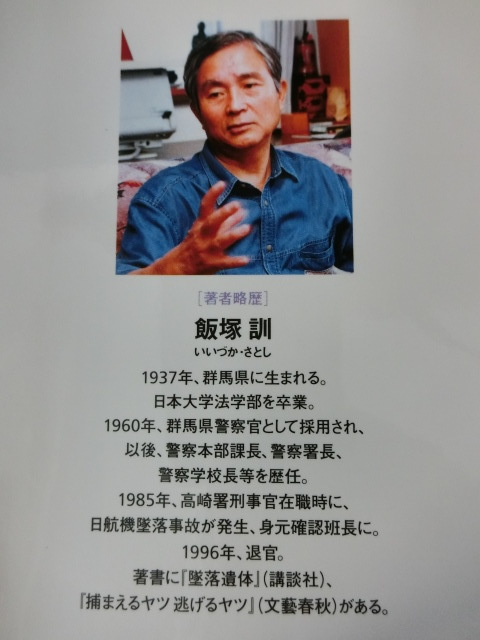 [著者略歴]
飯塚 訓
いいづか・さとし
1937年、群馬県に生まれる。
日本大学法学部を卒業。
1960年、群馬県警察官として採用され、
以後、警察本部課長、警察署長、
警察学校長等を歴任。
1985年、高崎署刑事官在職時に、
日航機墜落事故が発生、身元確認班長に。
1996年、退官。
著書に『墜落遺体』(講談社)、
『捕まえるヤツ 逃げるヤツ』(文藝春秋)がある。